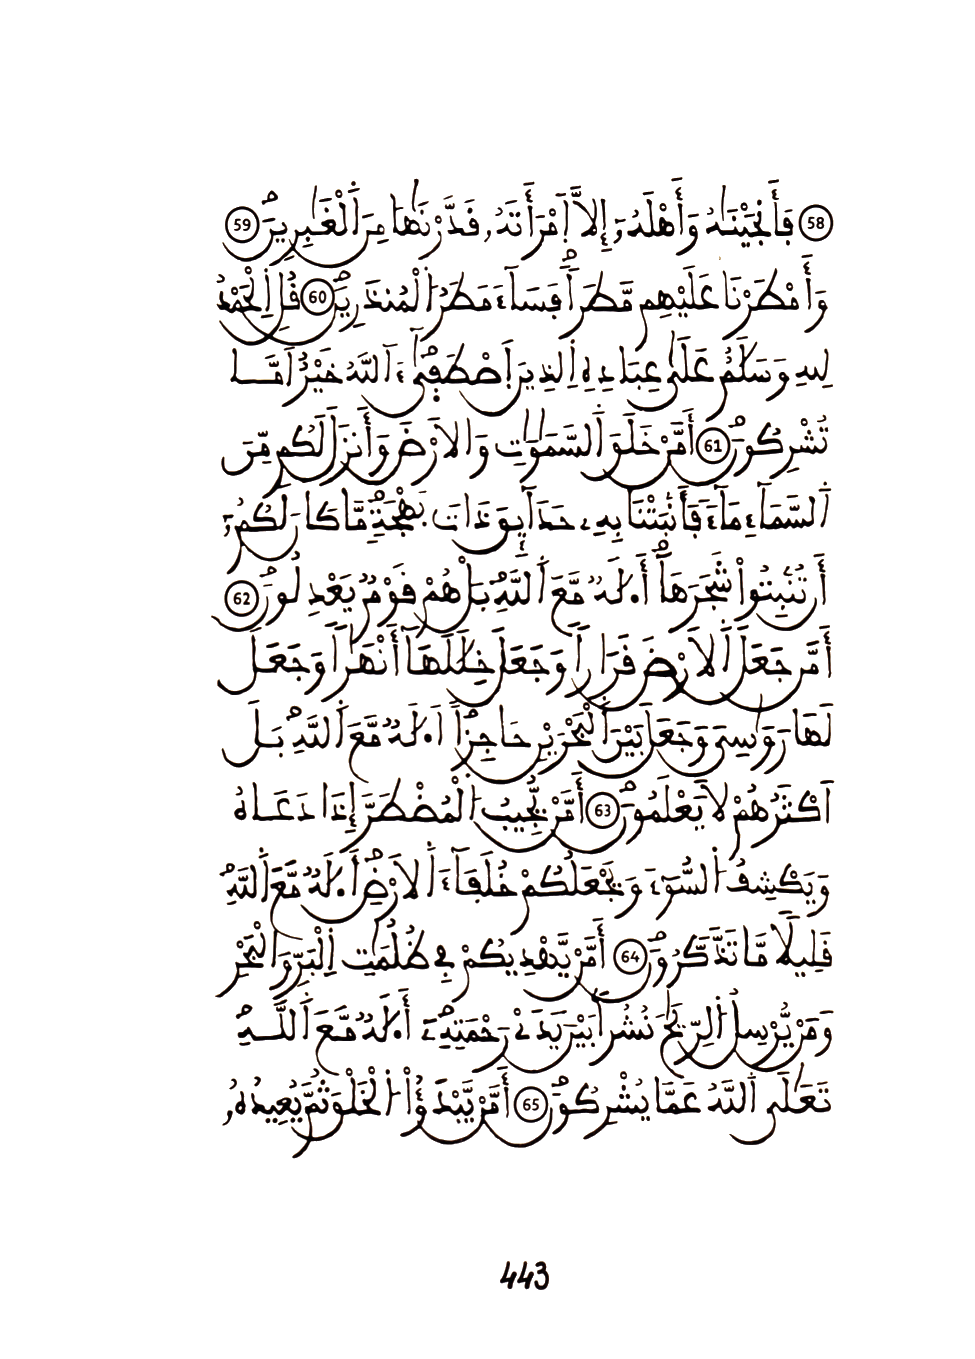 58 فَأَنجَيْنَٰهُ وَأَهْلَهُۥٓ إِلَّا اَ۪مْرَأَتَهُۥ قَدَّرْنَٰهَا مِنَ اَ۬لْغَٰبِرِينَ 59
وَأَمْطَرْنَا عَلَيْهِم مَّطَراٗ فَسَآءَ مَطَرُ اُ۬لْمُنذَرِينَ 60 قُلِ اِ۬لْحَمْدُ
لِلهِ وَسَلَٰمٌ عَلَىٰ عِبَادِهِ اِ۬لذِينَ اَ۪صْطَف۪ىٰٓ ءَآللَّهُ خَيْرٌ اَمَّا
تُشْرِكُونَ 61 أَمَّنْ خَلَقَ اَ۬لسَّمَٰوَٰتِ وَالَارْضَ وَأَنزَلَ لَكُم مِّنَ
اَ۬لسَّمَآءِ مَآءٗ فَأَنۢبَتْنَا بِهِۦ حَدَآئِقَ ذَاتَ بَهْجَةٖ مَّا كَانَ لَكُمُۥٓ
أَن تُنۢبِتُواْ شَجَرَهَآ أَ.لَٰهٞ مَّعَ اَ۬للَّهِ بَلْ هُمْ قَوْمٞ يَعْدِلُونَ 62
أَمَّن جَعَلَ اَ۬لَارْضَ قَرَاراٗ وَجَعَلَ خِلَٰلَهَآ أَنْهَٰراٗ وَجَعَلَ
لَهَا رَوَٰسِيَ وَجَعَلَ بَيْنَ اَ۬لْبَحْرَيْنِ حَاجِزاً اَ.لَٰهٞ مَّعَ اَ۬للَّهِ بَلَ
اَكْثَرُهُمْ لَا يَعْلَمُونَ 63 أَمَّنْ يُّجِيبُ اُ۬لْمُضْطَرَّ إِذَا دَعَاهُ
وَيَكْشِفُ اُ۬لسُّوٓءَ وَيَجْعَلُكُمْ خُلَفَآءَ اَ۬لَارْضِ أَ.لَٰهٞ مَّعَ اَ۬للَّهِ
قَلِيلاٗ مَّا تَذَّكَّرُونَ 64 أَمَّنْ يَّهْدِيكُمْ فِي ظُلُمَٰتِ اِ۬لْبَرِّ وَالْبَحْرِ
وَمَنْ يُّرْسِلُ اُ۬لرِّيَٰحَ نُشُراَۢ بَيْنَ يَدَےْ رَحْمَتِهِۦٓ أَ.لَٰهٞ مَّعَ اَ۬للَّهِ
تَعَٰلَى اَ۬للَّهُ عَمَّا يُشْرِكُونَ 65 أَمَّنْ يَّبْدَؤُاْ اُ۬لْخَلْقَ ثُمَّ يُعِيدُهُۥ
443